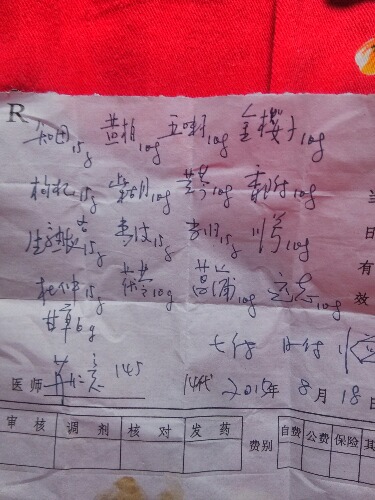 R
知母15g 黄柏10g 五味10g 金樱子10g
枸杞15g 柴胡10g 黄芩10g 香附10g
生龙牡各15g 青皮15g 当归15g 川芎10g
杜仲15g 茯苓10g 菖蒲10g 远志10g
甘草6g
七付
医师 145 2015年8月18日
当
日
有
效
审核 调剂 核对 发药 费别 自费 公费 保险 其